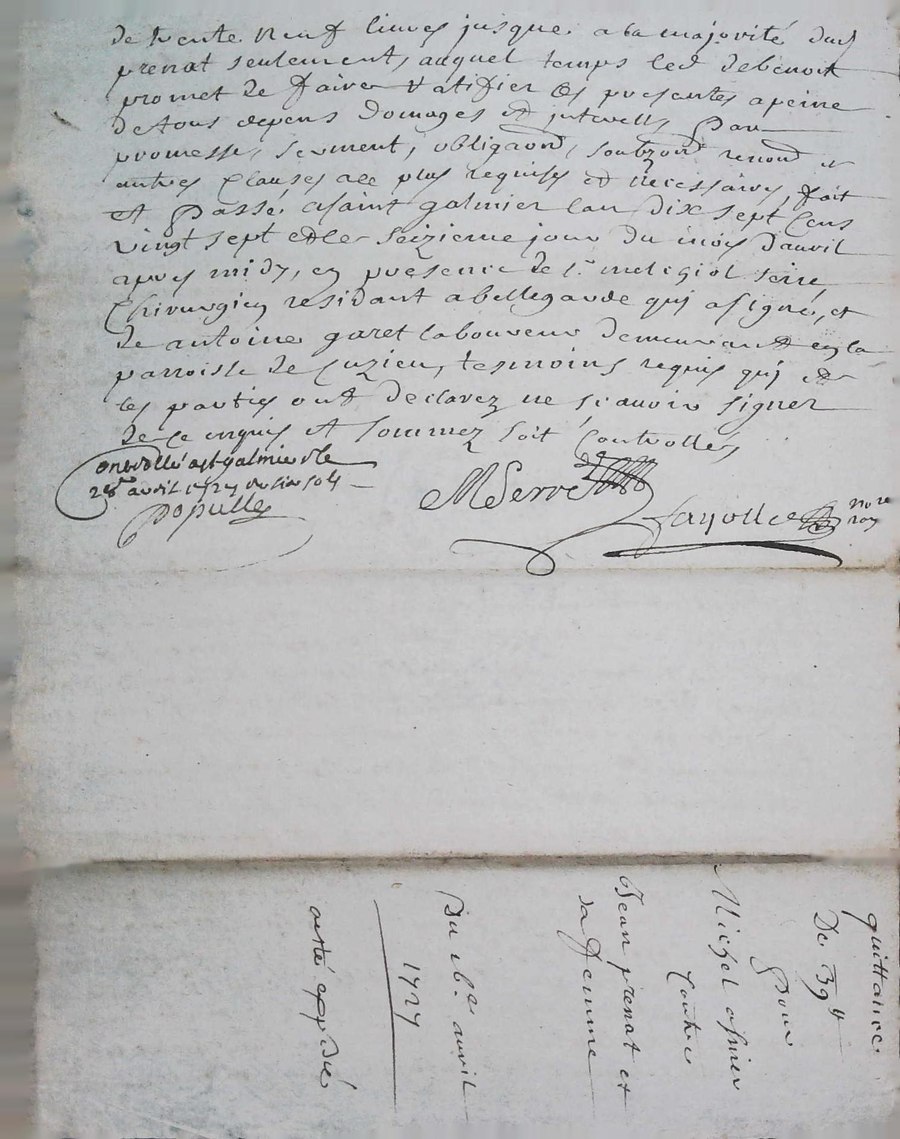 de trente neuf livres jusque a la majorité dud
prenat seulement, auquel temps led debenoit
promet de faire ratiffier Ces presentes a peine
de tous depens domages et interests, Par
promesse, serment, obligaon, soubzon renond et
autres Clauses ace plus requises et necessaires fait
et Passé a saint galmier lan dix sept Cens
vingt sept et le Seizieme jour du mois d'avril
apres midy, en presence de sr serre
Chirurgien residant a bellegarde qui a signé, et
de antoine garet laboureur demeurant en la
parroisse de Cuzieu, tesmoins requis qui et
les parties ont declarez ne scavoir signer
de ce enquis et sommez soit Controllé
Controllé a st galmier le
28me avril 1727 sols
populle
MSerre
fayolle no re
roy
quittance
De 39 ll
Pour
Michel
Contre
Jean prenat et
sa femme
Du 16e avril
1727
a esté eppedié